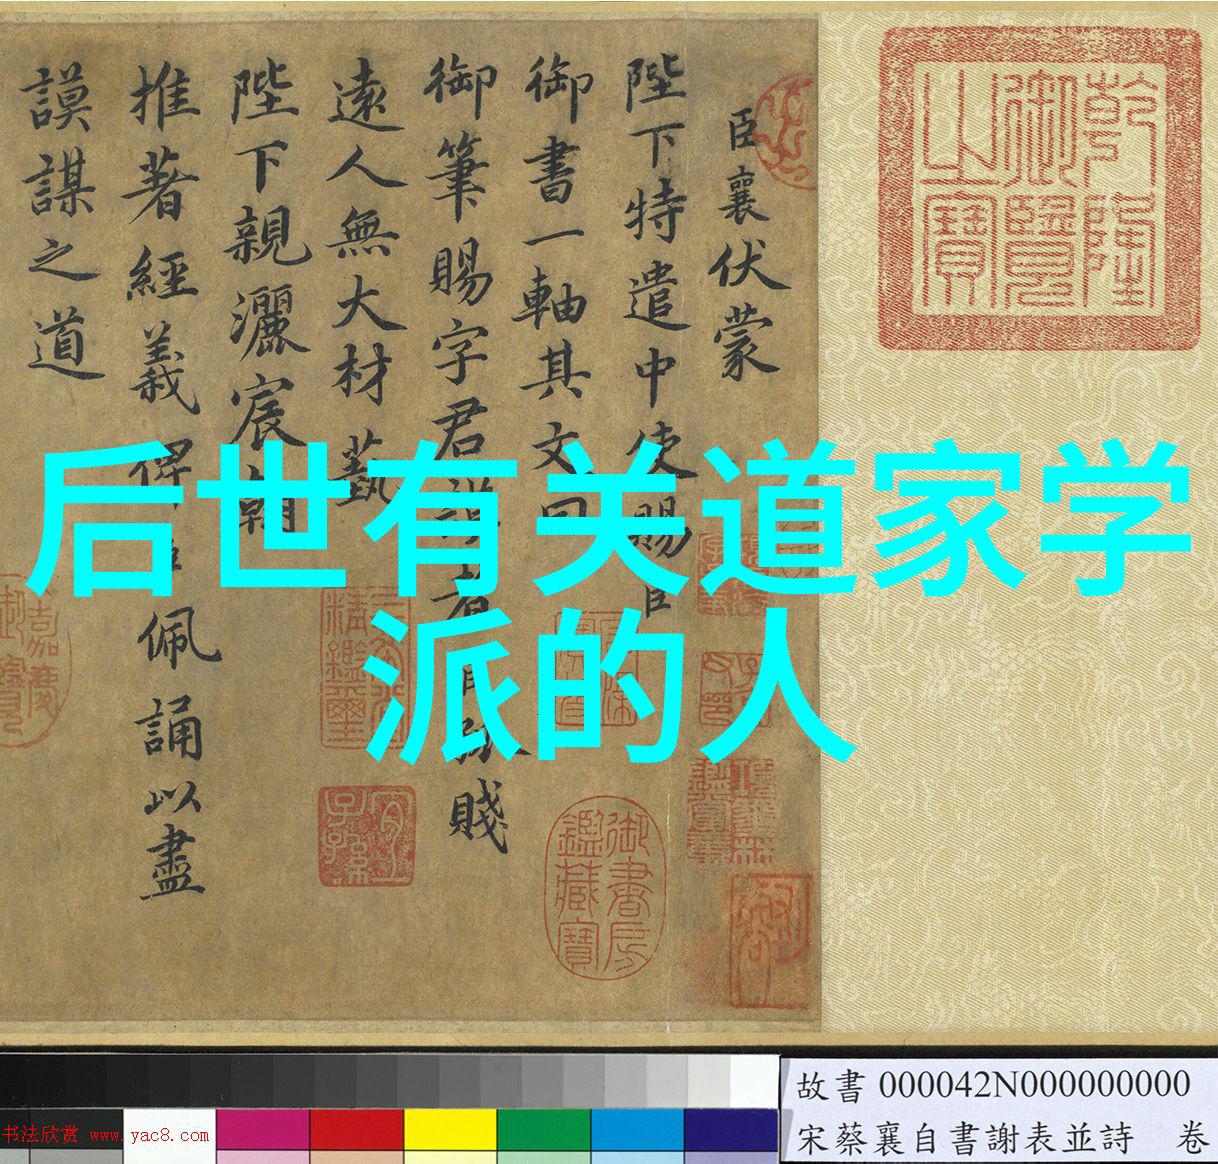 臣襄伏蒙
陛下特遣中使賜臣
御書一軸其文曰
御筆賜字君謨者
遠人無大材藝
陛下親灑宸翰
推著經義俾臣佩誦以盡
謨謀之道
乾隆御覽之寶
御書房鑑藏寶
宜子孫
后世有关道家学
派的人
故書 000042N000000000
宋蔡襄自書謝表並詩 卷
书法欣赏 www.yac8.com